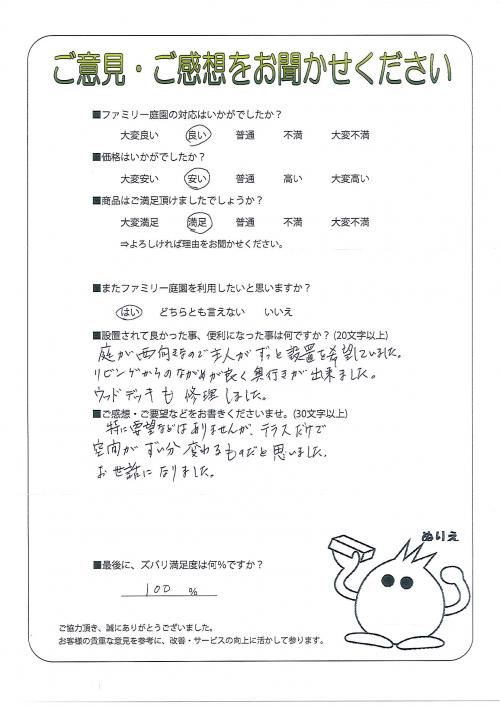 ご意見・ご感想をお聞かせください
■ファミリー庭園の対応はいかがでしたか？
大変良い 良い 普通 不満 大変不満
■価格はいかがでしたか？
大変安い 安い 普通 高い 大変高い
■商品はご満足頂けましたでしょうか？
大変満足 満足 普通 不満 大変不満
⇒よろしければ理由をお聞かせください。
■またファミリー庭園を利用したいと思いますか？
はい どちらとも言えない いいえ
■設置されて良かった事、便利になった事は何ですか？(20文字以上)
庭が西向きなので主人がずっと設置を希望していました。
リビングからのながめが良く奥行きが出来ました。
ウッドデッキも修理しました。
■ご感想・ご要望などをお書きくださいませ。(30文字以上)
特に要望などはありませんが、テラスだけで
空間がずい分変わるものだと思いました。
お世話になりました。
ぬりえ
■最後に、ズバリ満足度は何％ですか？
100 %
ご協力頂き、誠にありがとうございました。
お客様の貴重な意見を参考に、改善・サービスの向上に活かして参ります。